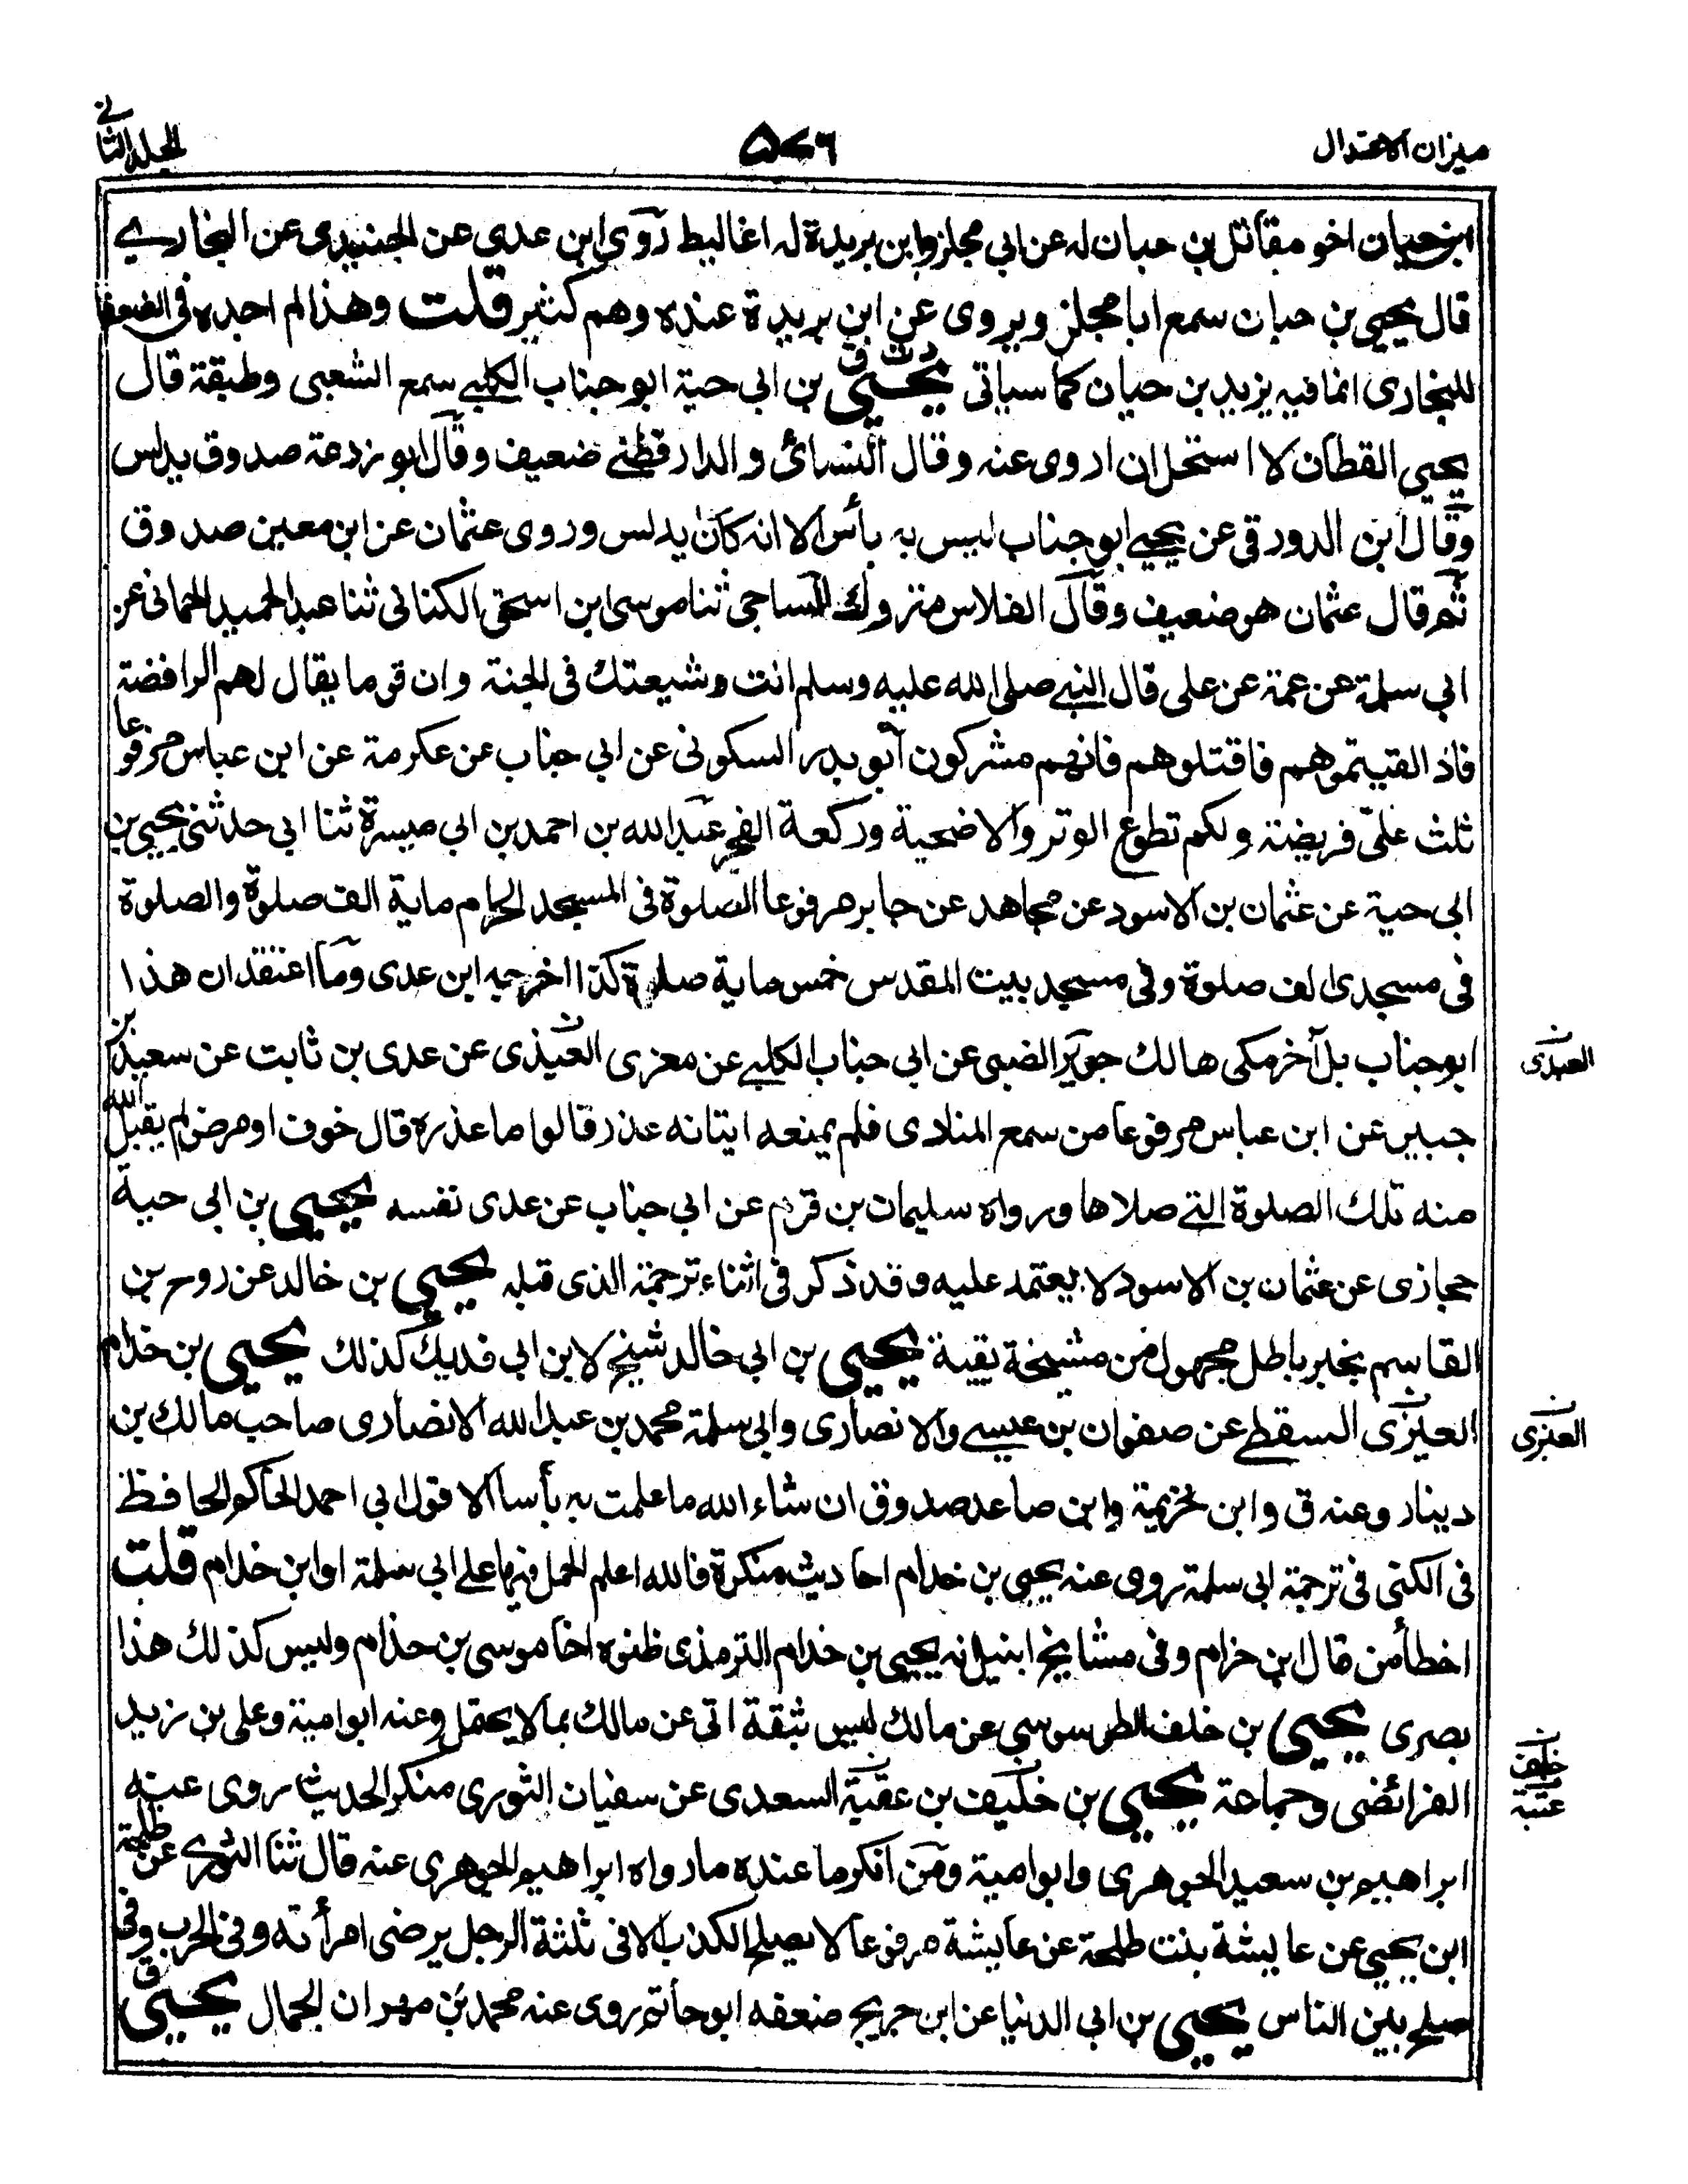 ميزان الاعتدال
۵۷۶
المجلد الثاني
ابن حيان اخو مقاتل بن حبان له عن ابي مجلز وابن بريدة له اغاليط روى ابن عدى عن الجنيدى عن البخارے
قال يحيى بن حبان سمع ابا مجلز ويروى عن ابن بريدة عنده وهم كثير قلت وهذا لم اجده فى الضعفا
للبخارى انما فيه يزيد بن حيان كما سياتى يحيى د ت ق بن ابى حية ابو جناب الكلبے سمع الشعبى وطبقة قال
يحيى القطان لا استحل ان اروى عنه وقال النسائ والدارقطنے ضعيف وقال ابو زرعة صدوق يدلس
وقال ابن الدورقى عن يحيے ابو جناب ليس به بأس الا انه كان يدلس وروى عثمان عن ابن معين صدوق
ثم قال عثمان هو ضعيف وقال الفلاس متروك الساجى ثنا موسى ابن اسحق الكنانى ثنا عبد الحميد الحمانى عن
ابي سلمة عن عمة عن على قال النبے صلى الله عليه وسلم انت وشيعتك فى الجنة وان قوما يقال لهم الرافضة
فاذا لقيتموهم فاقتلوهم فانهم مشركون ابو بدر السكونى عن ابي جناب عن عكرمة عن ابن عباس مرفوعا
ثلث علىّ فريضة ولكم تطوع الوتر والاضحية وركعة الفجر عبد الله بن احمد بن ابى ميسرة ثنا ابى حدثنى يحيى بن
ابى حية عن عثمان بن الاسود عن مجاهد عن جابر مرفوعا الصلوة فى المسجد الحرام ماية الف صلوة والصلوة
فى مسجدى الف صلوة وفى مسجد بيت المقدس خمس ماية صلوة كذا اخرجه ابن عدى وما اعتقد ان هذا
ابو جناب بل آخر مكى هالك جرير الضبى عن ابي جناب الكلبے عن مغرى العيذى عن عدى بن ثابت عن سعيد بن
العبدى
جبير عن ابن عباس مرفوعا من سمع المنادى فلم يمنعه ايتانه عذر قالوا ما عذره قال خوف او مرض لم يقبل الله
منه تلك الصلوة التے صلاها ورواه سليمان بن قرم عن ابي جناب عن عدى نفسه يحيى بن ابى حية
حجازى عن عثمان بن الاسود لا يعتمد عليه وقد ذكر فى اثناء ترجمة الذى قبله يحيى بن خالد عن روح بن
القاسم بخبر باطل مجهول من مشيخة بقية يحيى بن ابى خالد شيخ لابن ابى فديك كذلك يحيى بن خذام
العيزى السقطے عن صفوان بن عيسے والانصارى وابى سلمة محمد بن عبد الله الانصارى صاحب مالك بن
العنبرى
دينار وعنه ق وابن خزيمة وابن صاعد صدوق ان شاء الله ما علمت به بأسا الا قول ابي احمد الحاكم الحافظ
فى الكنى فى ترجمة ابى سلمة روى عنه يحيى بن خذام احاديث منكرة فالله اعلم الحمل فيها على ابي سلمة او ابن خذام قلت
اخطأ من قال ابن حزام وفى مشايخ انه يحيى بن خذام الترمذى ظنوه اخا موسى بن حذام وليس كذلك هذا
بصرى يحيى بن خلف الطرسوسى عن مالك ليس بثقة اتى عن مالك بما لا يحتمل وعنه ابو امية وعلى بن زيد
الفرائضى وجماعة يحيى بن خليف بن عقبة السعدى عن سفيان الثورى منكر الحديث روى عنه
خلف
عتبة
ابراهيم بن سعيد الجوهرى وابو امية ومن انكر ما عنده ما رواه ابراهيم الجوهرى عنه قال ثنا الثورے عن طلحة
ابن يحيى عن عايشة بنت طلحة عن عايشة مرفوعا لا يصلح الكذب الا فى ثلثة الرجل يرضى امرأته وفى الحرب وفى
صلح بين الناس يحيى بن ابى الدنيا عن ابن جريج ضعفه ابو حاتم روى عنه محمد بن مهران الجمال يحيى ق